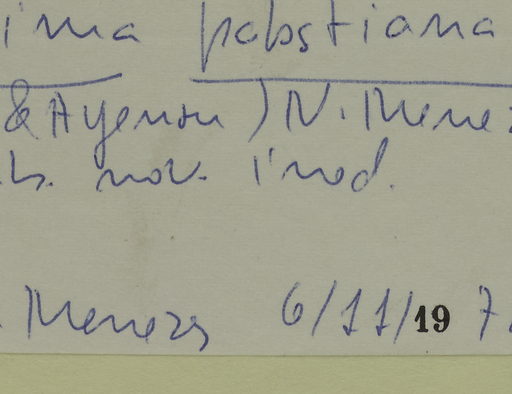 ima pabstiana
& Ayensu) N. Menez
b. nov. ined.
Menezes 6/11/19 7